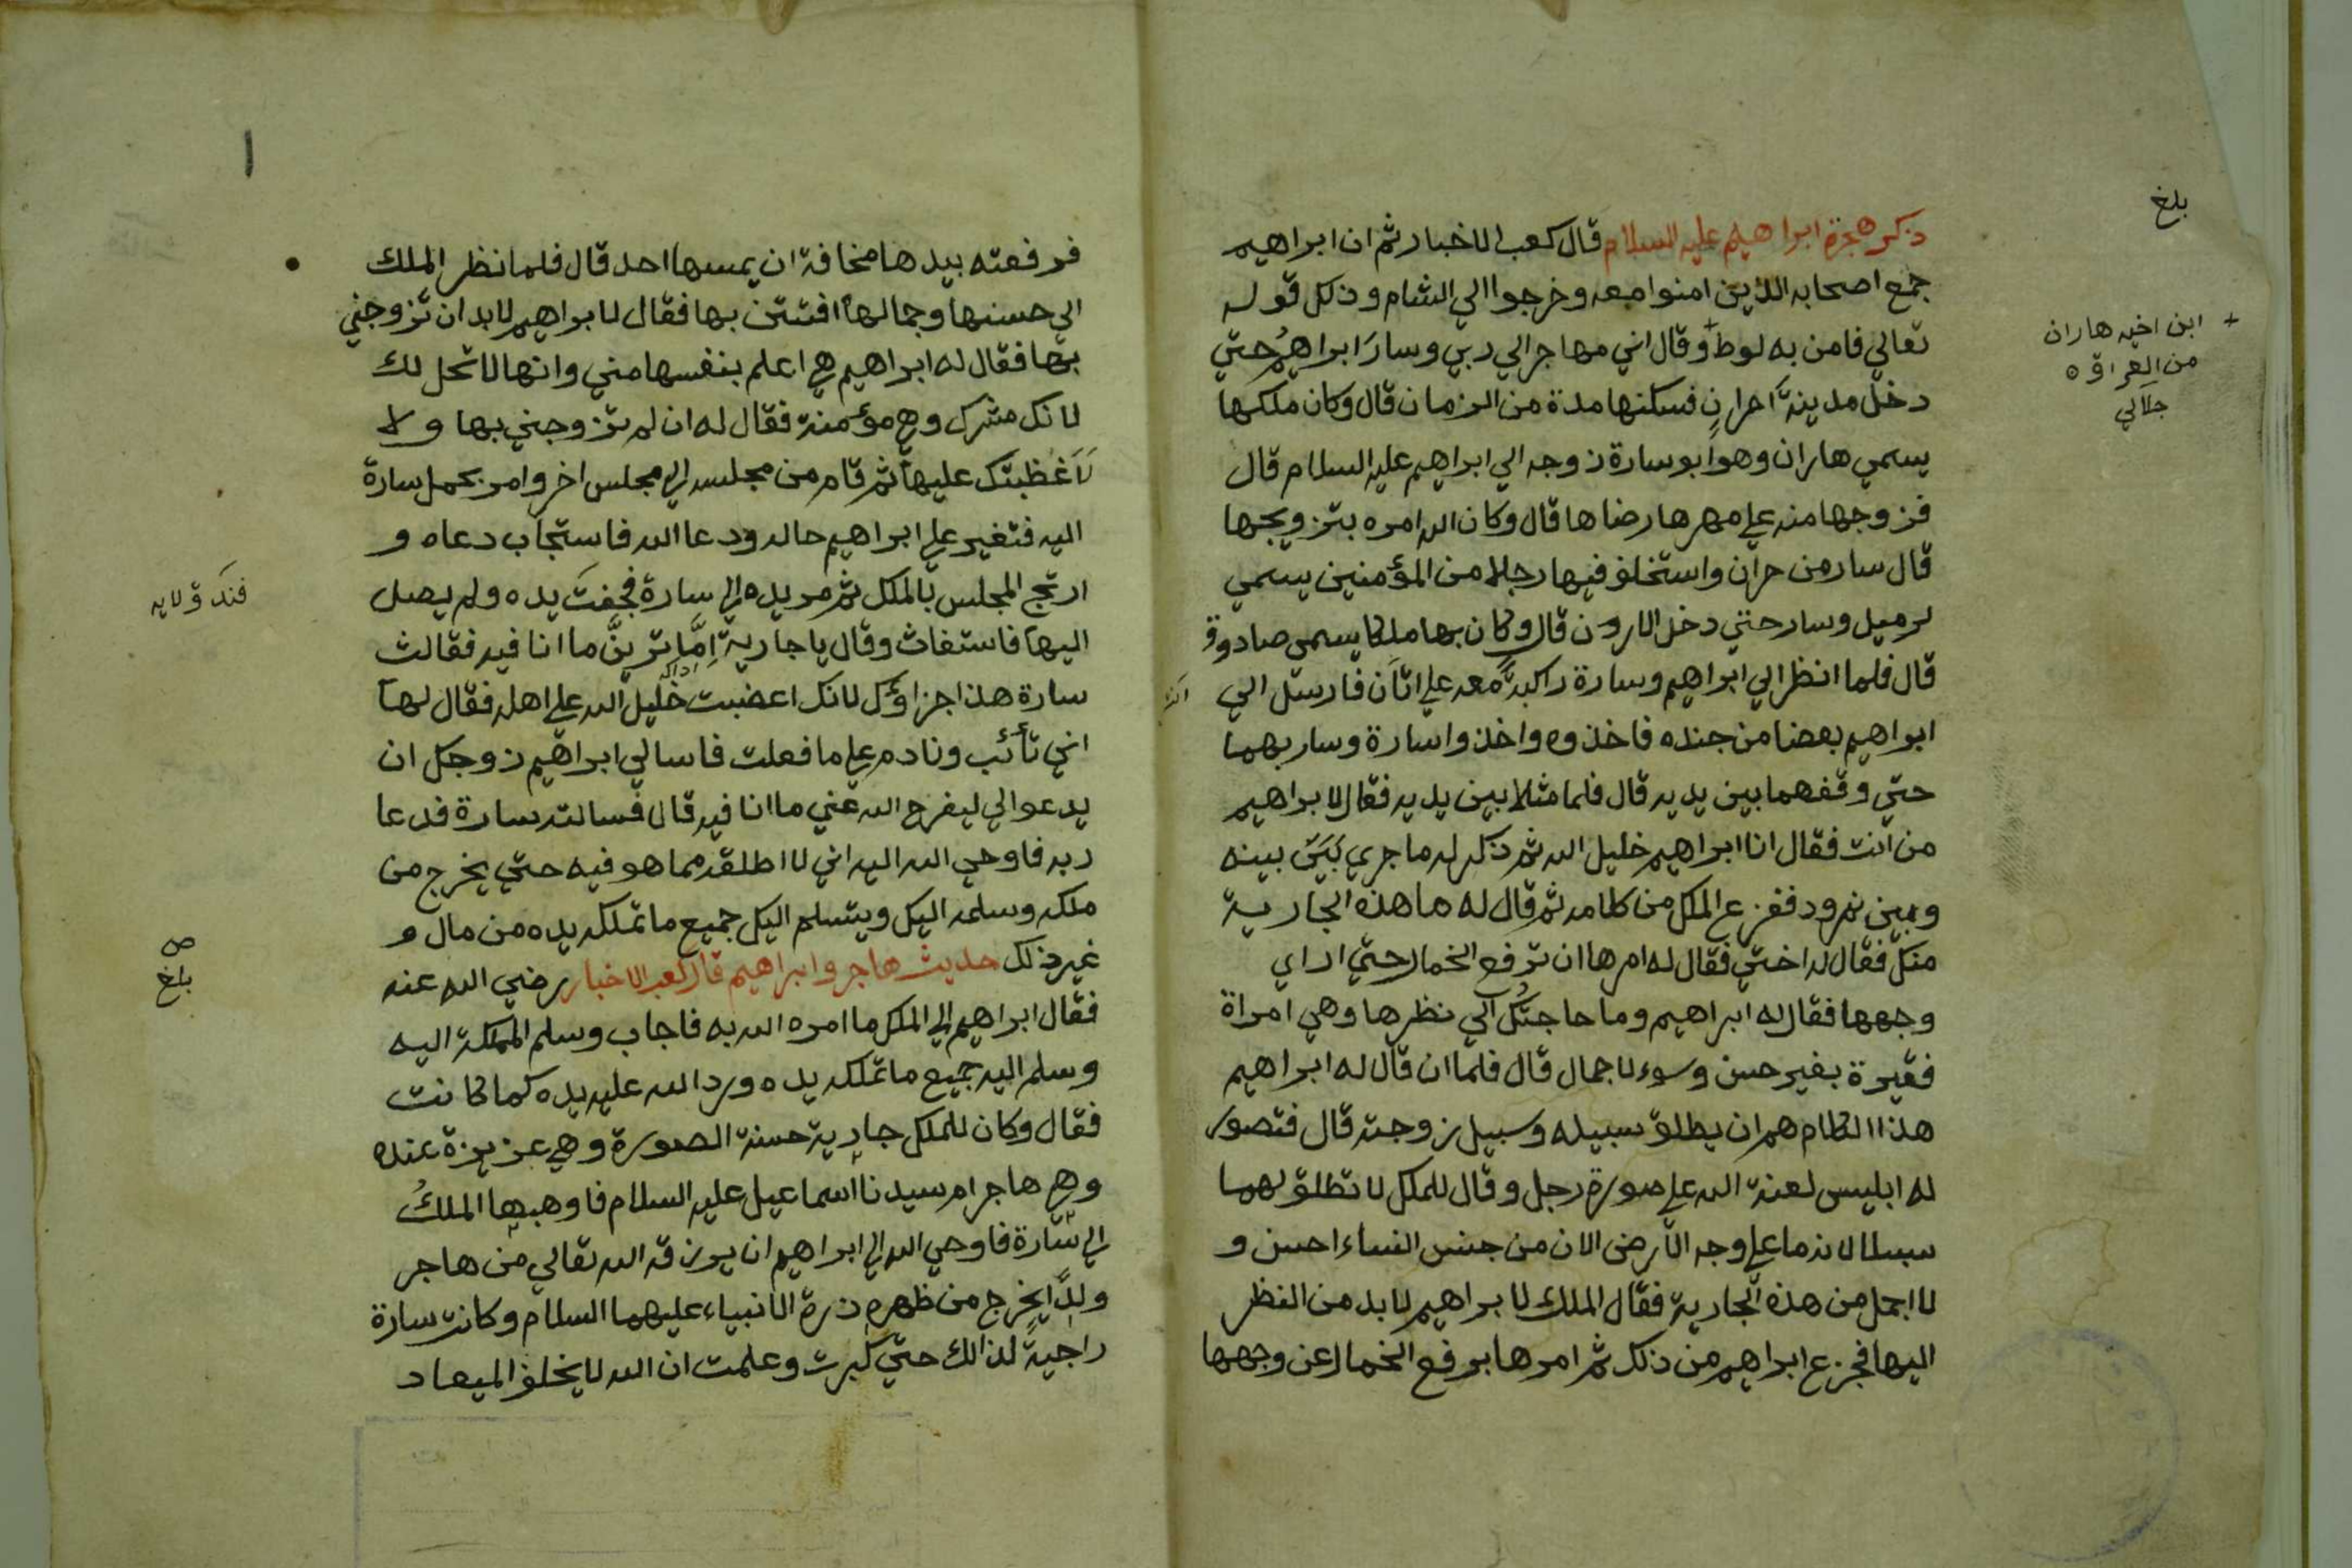 ذكر هجرة ابراهيم عليه السلام قال كعب الاخبار ثم ان ابراهيم
جمع اصحابه الذين امنوا معه وخرجوا الي الشام وذلك قوله
تعالي فامن به لوط وقال اني مهاجر الي ربي وسار ابراهيم حتي
دخل مدينة حران فسكنها مدة من الزمان قال وكان ملكها
يسمي هاران وهو ابو سارة زوجه الي ابراهيم عليه السلام قال
فزوجها منه علي مهرها رضاها قال وكان الله امره بتزويجها
قال سار من حران واستخلف فيها رجلا من المؤمنين يسمي
لرميل وسار حتي دخل الاردن قال وكان بها ملكا يسمي صادوق
قال فلما انظر الي ابراهيم وسارة راكبة معه علي اتان فارسل الي
ابراهيم بعضا من جنده فاخذوه واخذوا سارة وسار بهما
حتي وقفهما بين يديه قال فلما مثلا بين يديه فقال لابراهيم
من انت فقال انا ابراهيم خليل الله ثم ذكر له ما جري بين بينه
وبين نمرود ففزع الملك من كلامه ثم قال له ما هذه الجارية
منك فقال له اختي فقال له امرها ان ترفع الخمار حتي اراي
وجهها فقال له ابراهيم وما حاجتك الي نظرها وهي امراة
فقيرة بغير حسن وسوء لا جمال قال فلما ان قال له ابراهيم
هذا الكلام هم ان يطلق سبيله وسبيل زوجته قال فتصور
له ابليس لعنة الله علي صورة رجل وقال للملك لا تطلق لهما
سبيلا لانه ما علي وجه الارض الان من جنس النساء احسن و
لا اجمل من هذه الجارية فقال الملك لابراهيم لا بد من النظر
اليها فجزع ابراهيم من ذلك ثم امرها برفع الخمار عن وجهها
بلغ
+ ابن اخيه هاران
من العراق
جلالي
فرفعته بيدها مخافة ان يمسها احد قال فلما نظر الملك
الي حسنها وجمالها افتتن بها فقال لابراهيم لا بد ان تزوجني
بها فقال له ابراهيم هي اعلم بنفسها مني وانها لا تحل لك
لانك مشرك وهي مؤمنة فقال له ان لم تزوجني بها ولا
لاغظبتك عليها ثم قام من مجلسه الي مجلس اخر وامر بحمل سارة
اليه فتغير علي ابراهيم حاله ودعا الله فاستجاب دعاه و
ارتج المجلس بالملك ثم مد يده الي سارة فجفت يده ولم يصل
اليها فاستغاث وقال يا جارية اما ترين ما انا فيه فقالت
سارة هذا جزاؤك لانك اغضبت خليل الله علي اهله فقال لها
اني تائب ونادم علي ما فعلت فاسالي ابراهيم زوجك ان
يدعوا لي ليفرج الله عني ما انا فيه قال فسالته سارة فدعا
ربه فاوحي الله اليه اني لا اطلقه مما هو فيه حتي يخرج من
ملكه وسلمه اليك ويتسلم اليك جميع ما تملكه يده من مال و
غير ذلك حديث هاجر وابراهيم قال كعب الاخبار رضي الله عنه
فقال ابراهيم الي الملك ما امره الله به فاجاب وسلم المملكة اليه
وسلم اليه جميع ما تملكه يده ورد الله عليه يده كما كانت
فقال وكان للملك جارية حسنة الصورة وهي عزيزة عنده
وهي هاجر ام سيدنا اسماعيل عليه السلام فاوهبها الملك
الي سارة فاوحي الله الي ابراهيم ان يرزقه الله تعالي من هاجر
ولدا يخرج من ظهره ذرة الانبياء عليهما السلام وكانت سارة
راجية لذالك حتي كبرت وعلمت ان الله لا يخلف الميعاد
ص
بلغ